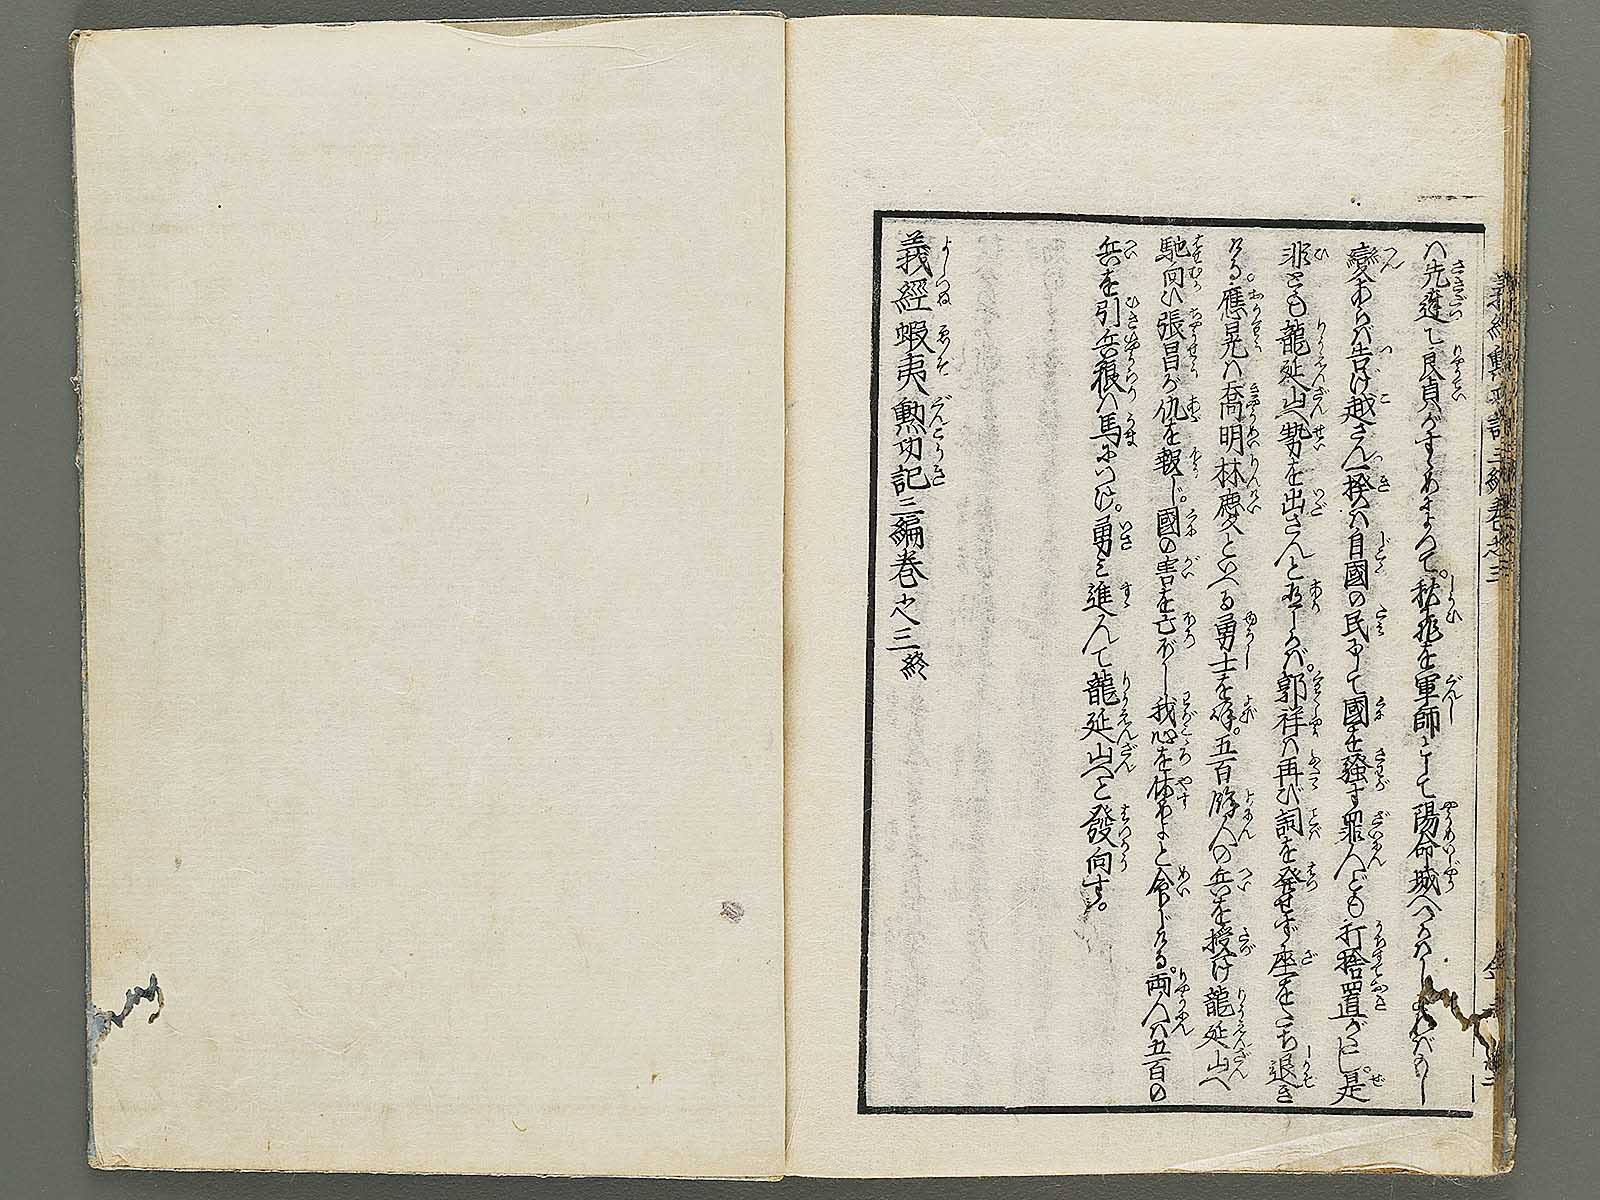 ハ先達て良貞がすゝめによつて。秋飛を軍師として陽命城へつかはしたれバもし
変あらバ告け越さん一揆ハ自國の民にて國を騒す罪人ども打捨置がたし。是
非とも龍延山へ勢を出さんと有しかバ。郭祥ハ再び詞を発せず座をたち退き
ける。應晃ハ喬明林慶といへる勇士を呼。五百餘人の兵を授け龍延山へ
馳向ひ張昌が仇を報じ。國の害を亡ぼし我心を休めよと命じける。両人ハ五百の
兵を引兵粮ハ馬につけ。勇ミ進んで龍延山へと發向す。
義經蝦夷勲功記三編巻之三終